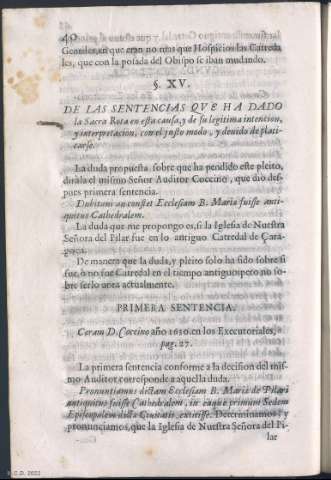 40
Gentiles, en que eran no mas que Hospicios las Catreda
les, que con la posada del Obispo se iban mudando.
§. XV.
DE LAS SENTENCIAS QVE HA DADO
la Sacra Rota en esta causa, y de su legitima intencion,
y interpretacion, con el justo modo, y devido de plati-
carse.
La duda propuesta sobre que ha pendido este pleito,
dirála el mismo Señor Auditor Coccino, que dió des-
pues primera sentencia.
Dubitum an constet Ecclesiam B. Maria fuisse anti-
quitus Cathedralem.
La duda que me propongo es, si la Iglesia de Nuestra
Señora del Pilar fue en lo antiguo Catredal de Çara-
goça.
De manera que la duda, y pleito solo ha sido sobre si
fue, ò no fue Catredal en el tiempo antiguo: pero no so-
bre serlo una actualmente.
PRIMERA SENTENCIA.
Coram D. Coccino año 1630. en los Executoriales,
pag. 27.
La primera sentencia conforme a la decision del mis-
mo Auditor corresponde a aquella duda.
Pronuntiamus dictam Ecclesiam B. Mariæ de Pilari
antiquitus fuisse Cathedralem, in eaque primum Sedem
Episcopalem dictæ Civitatis, extitisse. Determinamos, y
pronunciamos, que la Iglesia de Nuestra Señora del Pi-
lar